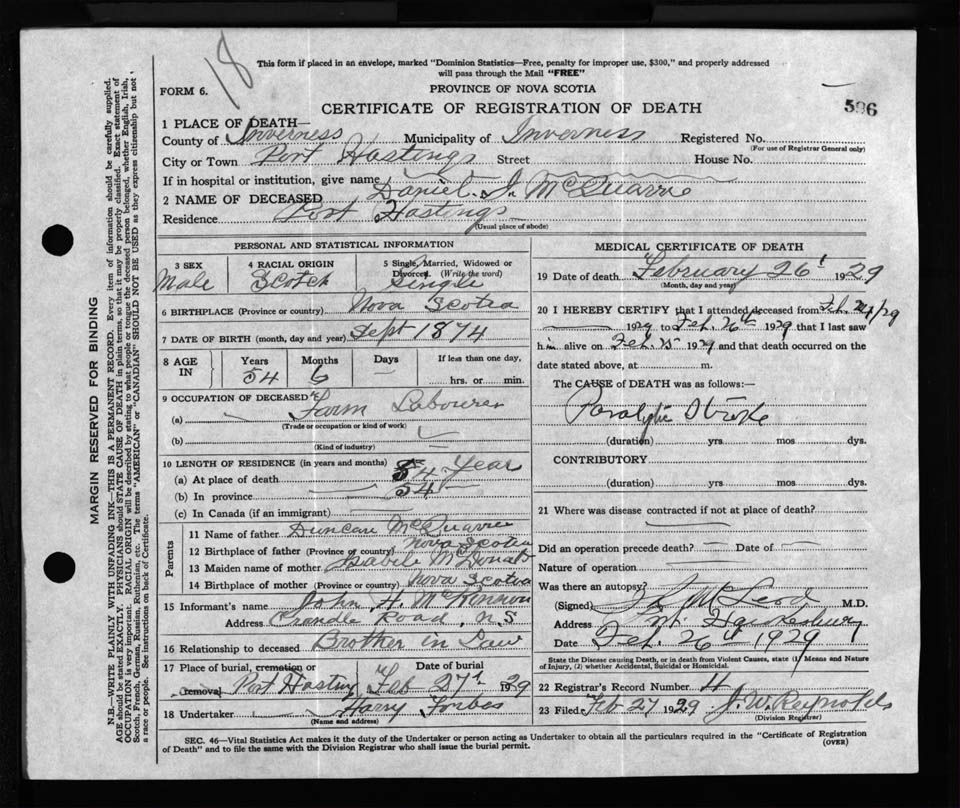 18
This form if placed in an envelope, marked "Dominion Statistics—Free, penalty for improper use, $300," and properly addressed
will pass through the Mail "FREE"
FORM 6.
PROVINCE OF NOVA SCOTIA
CERTIFICATE OF REGISTRATION OF DEATH
596
1 PLACE OF DEATH—
County of Inverness Municipality of Inverness Registered No.
(For use of Registrar General only)
City or Town Port Hastings Street House No.
If in hospital or institution, give name
2 NAME OF DECEASED Daniel J. McQuarrie
Residence Port Hastings
(Usual place of abode)
PERSONAL AND STATISTICAL INFORMATION
3 SEX Male
4 RACIAL ORIGIN Scotch
5 Single, Married, Widowed or
Divorced. (Write the word)
Single
6 BIRTHPLACE (Province or country) Nova Scotia
7 DATE OF BIRTH (month, day and year) Sept 1874
8 AGE IN Years 54 Months 6 Days — If less than one day,
hrs. or min.
9 OCCUPATION OF DECEASED
(a) Farm Labourer
(Trade or occupation or kind of work)
(b)
(Kind of industry)
10 LENGTH OF RESIDENCE (in years and months)
(a) At place of death 54 Year
(b) In province 54
(c) In Canada (if an immigrant)
Parents
11 Name of father Duncan McQuarrie
12 Birthplace of father (Province or country) Nova Scotia
13 Maiden name of mother Isabele McDonald
14 Birthplace of mother (Province or country) Nova Scotia
15 Informant's name John H. McKinnon
Address Crandle Road, N.S
16 Relationship to deceased Brother in Law
17 Place of burial, cremation or removal Port Hastings Date of burial Feb 27th 1929
18 Undertaker Harry Forbes
(Name and address)
MEDICAL CERTIFICATE OF DEATH
19 Date of death February 26 1929
(Month, day and year)
20 I HEREBY CERTIFY that I attended deceased from Feb. 24/29
1929 to Feb. 26th 1929 that I last saw
him alive on Feb. 25 1929 and that death occurred on the
date stated above, at m.
The CAUSE of DEATH was as follows:—
Paralytic Stroke
(duration) yrs. mos dys.
CONTRIBUTORY
(duration) yrs. mos. dys.
21 Where was disease contracted if not at place of death?
Did an operation precede death? — Date of —
Nature of operation
Was there an autopsy?
(Signed) McLeod M.D.
Address Pt. Hawkesbury
Date Feb. 26th 1929
State the Disease causing Death, or in death from Violent Causes, state (1) Means and Nature
of Injury, (2) whether Accidental, Suicidal or Homicidal.
22 Registrar's Record Number 4
23 Filed Feb 27 1929 J. W. Reynolds
(Division Registrar)
SEC. 46—Vital Statistics Act makes it the duty of the Undertaker or person acting as Undertaker to obtain all the particulars required in the "Certificate of Registration
of Death" and to file the same with the Division Registrar who shall issue the burial permit.
(OVER)
MARGIN RESERVED FOR BINDING
N.B.—WRITE PLAINLY WITH UNFADING INK—THIS IS A PERMANENT RECORD. Every item of information should be carefully supplied.
AGE should be stated EXACTLY. PHYSICIANS should STATE CAUSE OF DEATH in plain terms, so that it may be properly classified. Exact statement of
OCCUPATION is very important. RACIAL ORIGIN will be described by stating to what people or tongue the deceased person belonged, whether English, Irish,
Scotch, French, German, Russian, Ruthenian, etc. The terms "AMERICAN" or "CANADIAN" SHOULD NOT BE USED as they express citizenship but not
a race or people. See instructions on back of Certificate.